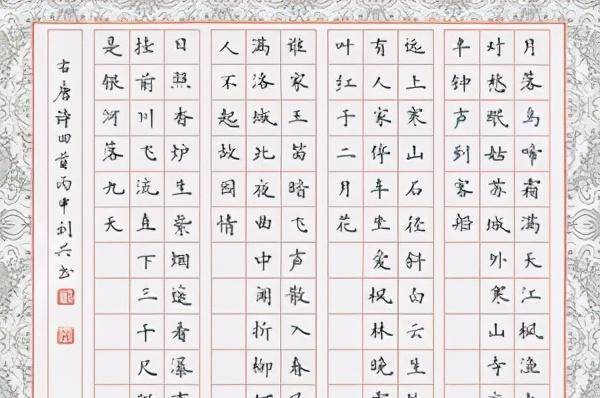 月落乌啼霜满天江枫渔
对愁眠姑苏城外寒山寺
半钟声到客船
远上寒山石径斜白云生
有人家停车坐爱枫林晚
叶红于二月花
谁家玉笛暗飞声散入春
满洛城此夜曲中闻折柳
人不起故园情
日照香炉生紫烟遥看瀑
挂前川飞流直下三千尺
是银河落九天
古唐诗四首丙申利兵书